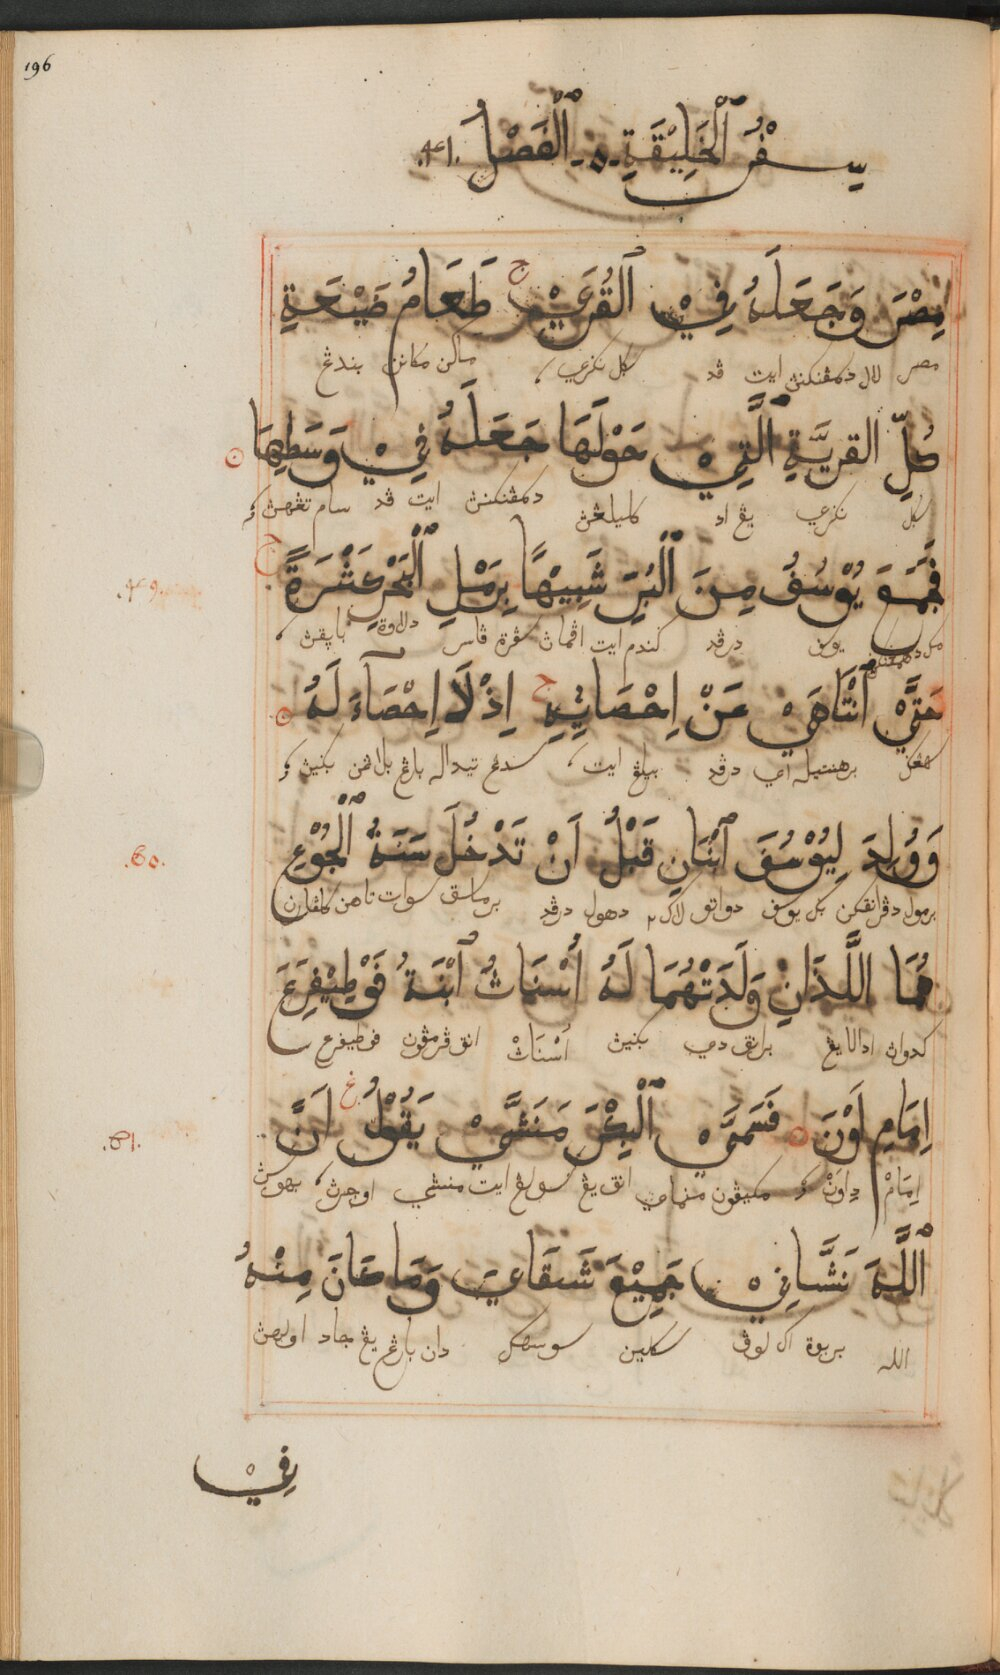 196
سِفْرُ ٱلْخَلِيْقَةِ .٥. ٱلْفَصْلُ .٤١.
مِصْرَ وَجَعَلَهُ فِيْ ٱلقُرَيِ ج طَعَامُ ضَيْعَةِ
مصر لال دكمڤنكنڽ ايت ڤد سكل نكري، ماكن مكانن بندڠ
كُلِّ القريَّةِ ٱلَّتِيْ حَوْلَهَا جَعَلَهُ فِيْ وَسَطِهَا ن
سكل نكري يڠ اد كليلڠن دكمڤنكنڽ ايت ڤد سام تڠهڽ
.٤٩.
فَجَمَعَ يُوْسُفُ مِنَ ٱلْبُرِّ شَبِيْهًا بِرَمْلِ ٱلْبَحْرِ عَثْرَةً ج
مك دكمڤنكن يوسف درڤد كندم ايت اڤمان سڤرة ڤاسر دلاوة باڽقڽ،
حَتَّيْ ٱنْتَاهَيْ عَنْ اِحْصَائِهِ ج اِذْلَا اِحْصَآءَ لَهُ ن
سهڠك برهنتيله اي درڤد بيلڠ ايت، سدڠ تيداله بارڠ بلاڠن بكيڽ
.٥٠.
وَوُلِدَ لِيُوْسُفَ ٱثْنَانِ قَبْلُ اَنْ تَدْخُلَ سَنَةُ ٱلْجُوْعِ
برمول دڤرانقكن بكي يوسف دواتو لاكي٢ دهول درڤد برماسق سوات تاهن كلڤارن
هُمَا اللَّذَانِ وَلَدَتْهُمَا لَهُ أَسْنَاثُ ٱبْنَةُ فَوْطِيْفِرَعَ
كدوان ادالايڠ برانق دي بكيڽ أَسْنَاثْ انق ڤرمڤون فوطيفرع
.٥١.
اِمَامِ اَوْنَ ن فَسَمَّيْ ٱلْبِكْرَ مَنَشَّيْ يَقُوْلُ غ اَنَّ
اِمَامْ دِاَوْنْ مكيڤون منماي انق يڠ سولڠ ايت منشي اوجرڽ، بهوسڽ
ٱللَّهَ نَشَّانِيْ جَمِيْعَ شَقَاءِيْ وَمَا كَانَ مِنْهُ
الله بربوة اك لوڤ سكلين سوسهك دان بارڠ يڠ جاد اولهڽ
فِيْ